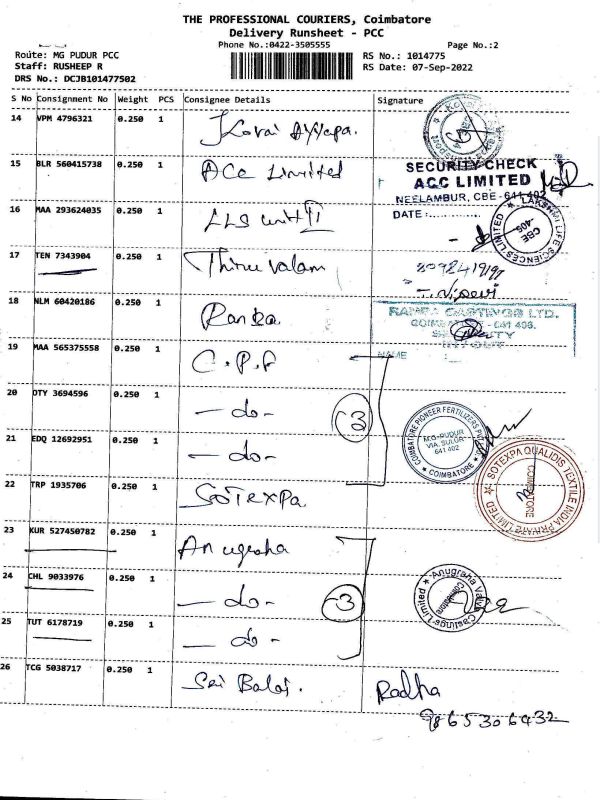 THE PROFESSIONAL COURIERS, Coimbatore
Delivery Runsheet - PCC
Phone No.:0422-3505555 Page No.:2
Route: MG PUDUR PCC RS No.: 1014775
Staff: RUSHEEP R RS Date: 07-Sep-2022
DRS No.: DCJB101477502
S No Consignment No Weight PCS Consignee Details Signature
14 VPM 4796321 0.250 1 Kovai Ayyapa.
15 BLR 560415738 0.250 1 ACC Limited
SECURITY CHECK
ACC LIMITED
NEELAMBUR, CBE - 641 402
DATE :
16 MAA 293624035 0.250 1 LLS unit II
LAKSHMI LIFE SCIENCES LIMITED
CBE
17 TEN 7343904 0.250 1 Thiruvalam
18 NLM 60420186 0.250 1 Ranba
CASTINGS LTD.
NAME
19 MAA 565375558 0.250 1 C.P.F
20 OTY 3694596 0.250 1 - do - 3
21 EDQ 12692951 0.250 1 - do -
COIMBATORE PIONEER FERTILIZERS
VIA. SULUR
641 402
COIMBATORE
22 TRP 1935706 0.250 1 SOTEXPA
SOTEXPA QUALIDIS TEXTILE INDIA PRIVATE LIMITED
COIMBATORE
23 KUR 527450782 0.250 1 Anugraha
24 CHL 9033976 0.250 1 - do - 3
25 TUT 6178719 0.250 1 - do -
Anugraha Valve Castings Limited
Coimbatore
26 TCG 5038717 0.250 1 Sri Balai. Radha
9865306432